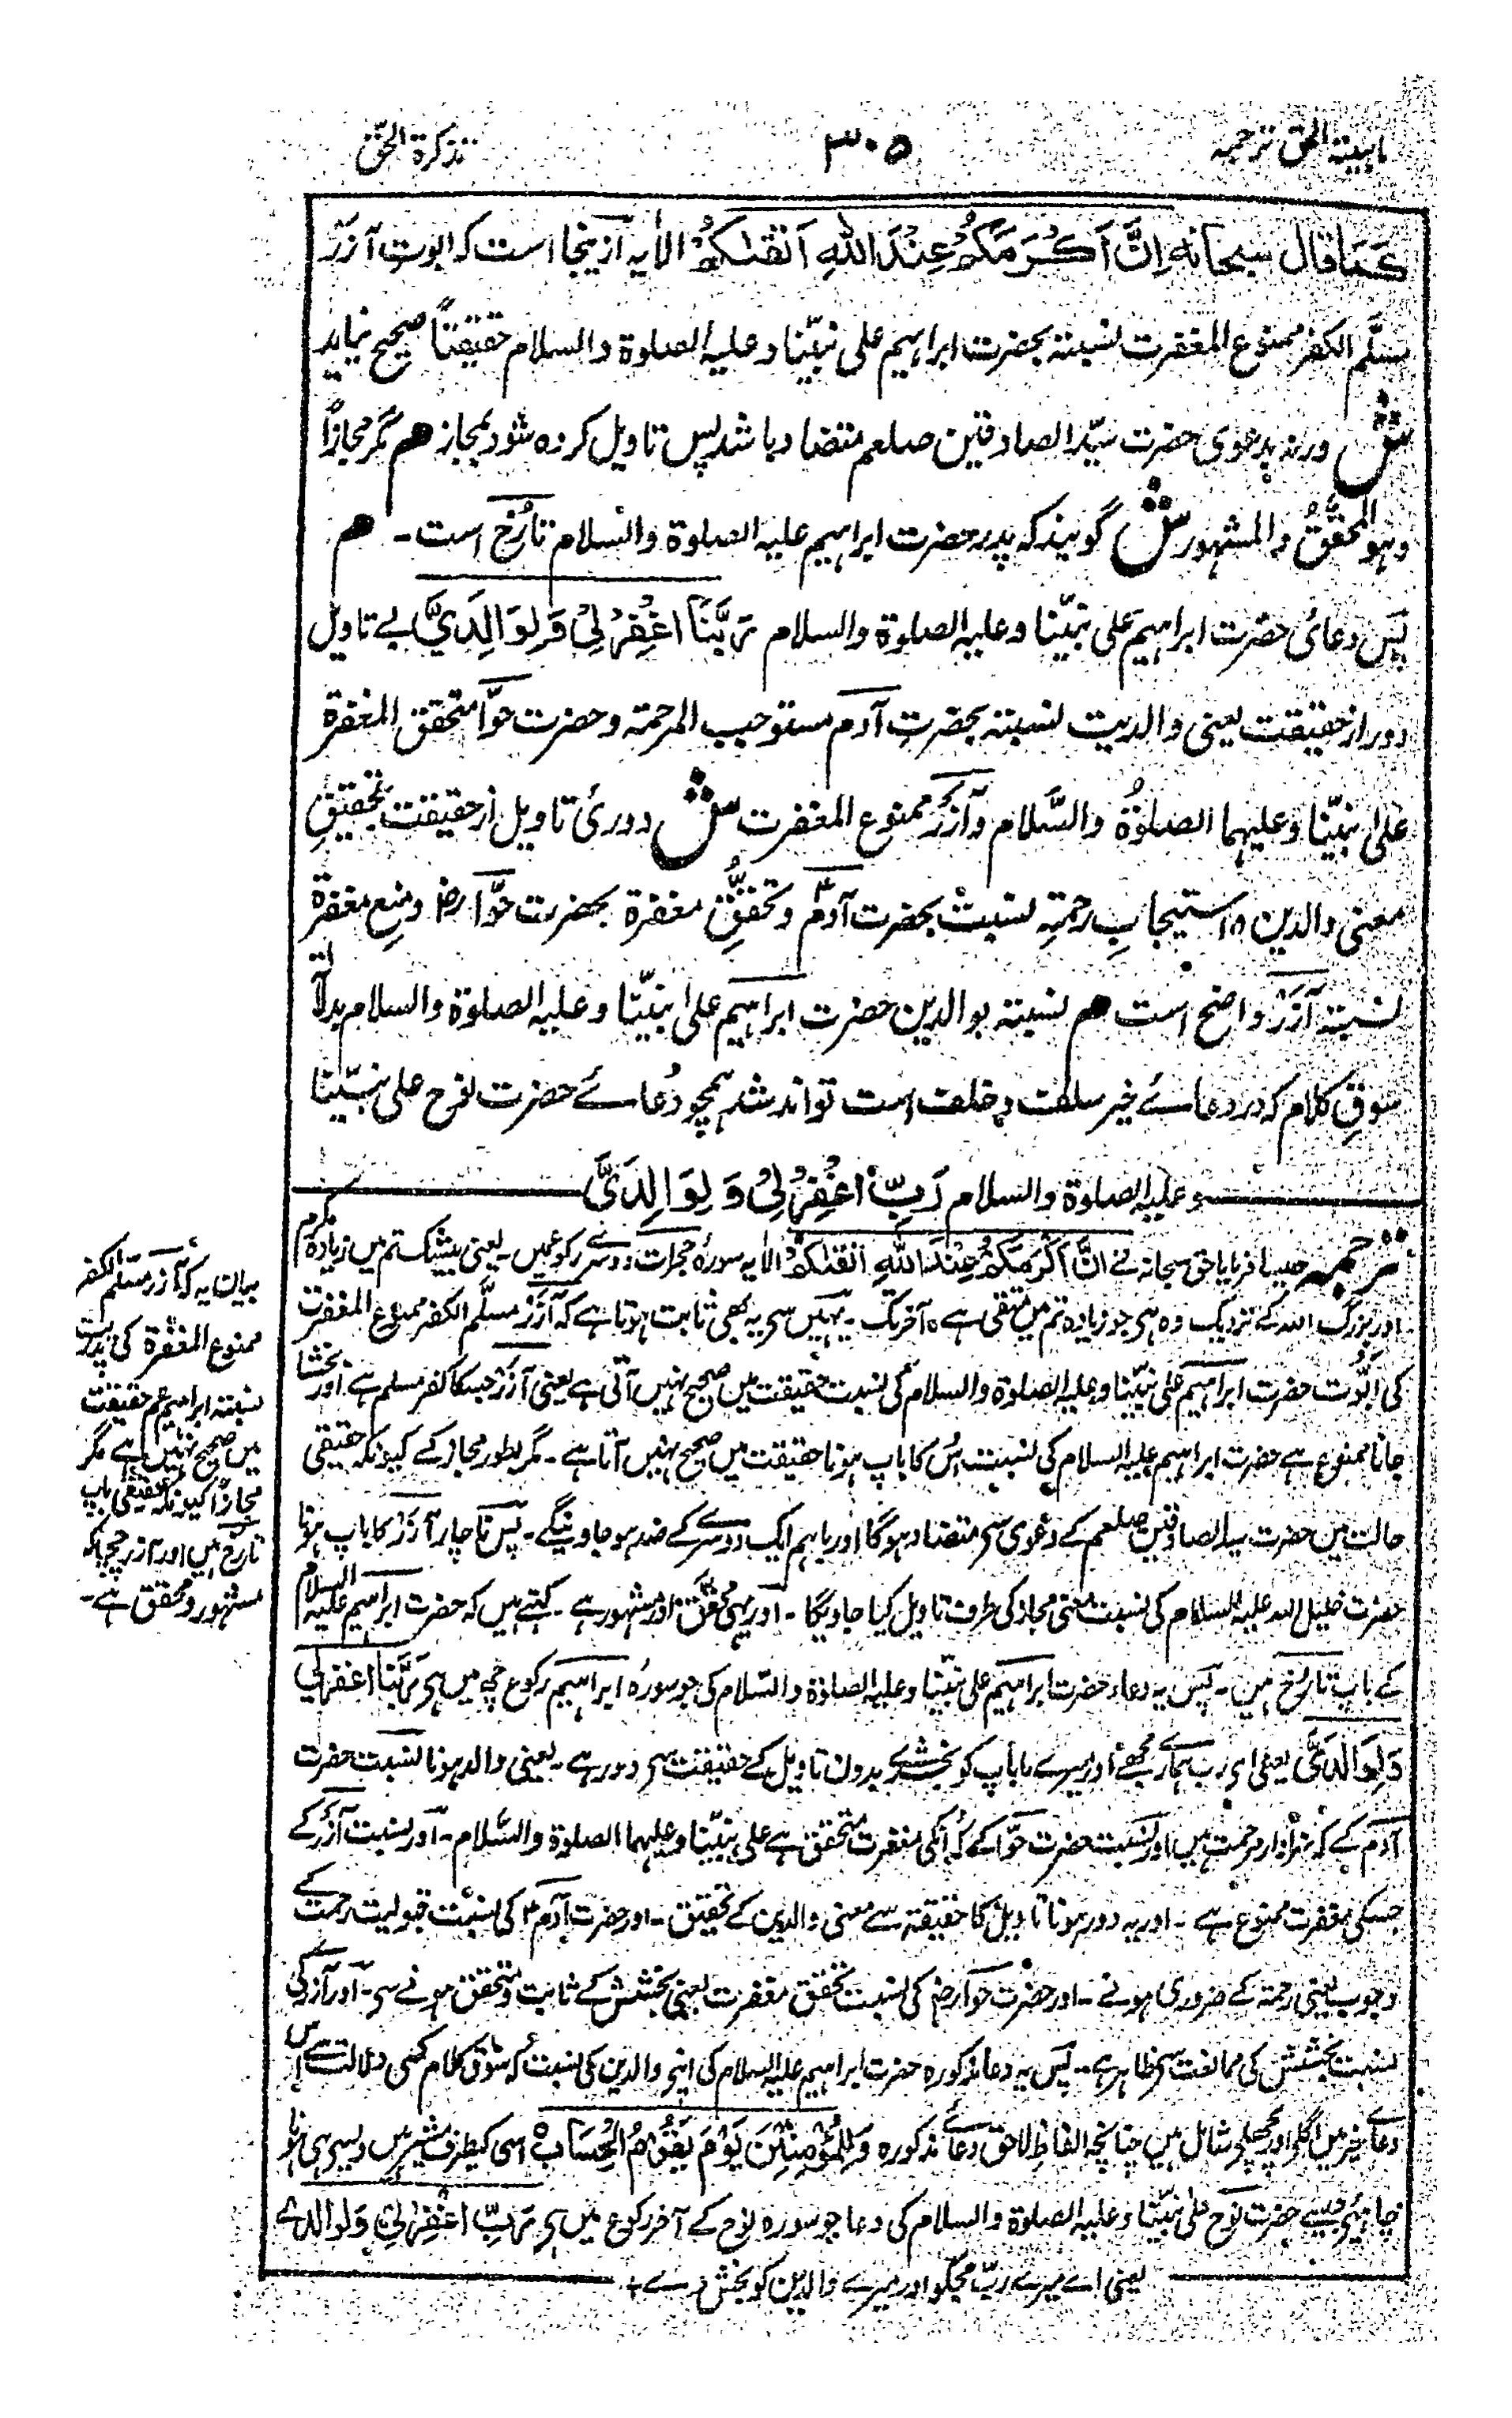 ماہیتہ الحق ترجمہ ۳۰۵ تذکرۃ الحق
کَمَا قال سبحانہ اِنَّ اَکْرَمَکُمْ عِنْدَ اللہِ اَتْقٰکُمْ الاٰیہ ازینجا است کہ ابوت آزر
مسلّم الکفر ممنوع المغفرت نسبتہ بحضرت ابراہیم علی نبیّنا وعلیہ الصلوۃ والسلام حقیقتاً صحیح نیاید
ش ورنہ بدعوی حضرت سیّد الصادقین صلعم متضاد باشد پس تاویل کردہ شود بمجاز ھم مگر مجازاً
وہو المحقَّقُ والمشہور ش گویند کہ پدر حضرت ابراہیم علیہ الصلوۃ والسلام تارخ است۔ ھم
پس دعائ حضرت ابراہیم علی نبیّنا وعلیہ الصلوۃ والسلام رَبَّنَا اغْفِرْ لِیْ وَلِوَالِدَیَّ بے تاویل
دور از حقیقت یعنی والدیت نسبتہ بحضرتِ آدم مستوجب المرحمتہ وحضرت حوّا متحقق المغفرۃ
علیٰ نبیّنا وعلیہما الصلوٰۃُ والسَّلام وآزر ممنوع المغفرت ش دورئ تاویل از حقیقت بتحقیقِ
معنی والدین و استیجابِ رحمتِہ نسبت بحضرت آدمؑ وتحققِ مغفرۃ بحضرت حوّا رض ومنع مغفرۃ
نسبتہ آزر واضح است ھم نسبتہ بوالدین حضرت ابراہیم علیٰ نبیّنا وعلیہ الصلوۃ والسلام بدلالۃ
سوقِ کلام کہ در دعائے خیر سلف وخلف است تواند شد ہمچو دُعائے حضرت نوح علی نبیّنا
وعلیہ الصلوۃ والسلام رَبِّ اغْفِرْ لِیْ وَلِوَالِدَیَّ
ترجمہ جیسا فرمایا حق سبحانہ نے اِنَّ اَکْرَمَکُمْ عِنْدَ اللہِ اَتْقٰکُمْ الاٰیہ سورہ حجرات دوسرے رکوع میں۔ یعنی بیشک تم میں زیادہ مکرم
اور بزرگ اللہ کے نزدیک وہ ہی جو زیادہ تم میں متقی ہے ہ آخر تک۔ یہیں سے یہ بھی ثابت ہوتا ہے کہ آزر مسلّم الکفر ممنوع المغفرت
کی ابُوّت حضرت ابراہیم علی نبیّنا وعلیہ الصلوۃ والسلام کی نسبت حقیقت میں صحیح نہیں آتی ہے یعنی آزر جسکا کفر مسلم ہے اور بخشا
جانا ممنوع ہے حضرت ابراہیم علیہ السلام کی نسبت اُس کا باپ ہونا حقیقت میں صحیح نہیں آتا ہے۔ مگر بطور مجاز کے کیونکہ حقیقی
حالت میں حضرت سید الصادقین صلعم کے دعوی سے متضاد ہوگا اور باہم ایک دوسرے کے ضد ہو جاوینگے۔ پس ناچار آزر کا باپ ہونا
حضرت خلیل اللہ علیہ السلام کی نسبت معنی مجاز کی طرف تاویل کیا جاویگا۔ اور یہی محقق اور مشہور ہے۔ کہتے ہیں کہ حضرت ابراہیم علیہ السلام
کے باپ تارخ ہیں۔ پس یہ دعاء حضرت ابراہیم علی نبیّنا وعلیہ الصلوۃ والسّلام کی جو سورہ ابراہیم رکوع چھ میں ہی رَبَّنَا اغفرلی
وَلِوَالِدَیَّ یعنی ای رب ہمارے مجھے اور میرے ماباپ کو بخشدے بدون تاویل کے حقیقت سے دور ہے۔ یعنی والد ہونا نسبت حضرت
آدم کے کہ سزاوار مرحمت ہیں اور نسبت حضرت حوّا کے کہ اُنکی مغفرت متحقق ہے علی نبیّنا وعلیہما الصلوۃ والسَّلام۔ اور نسبت آزر کے
جسکی مغفرت ممنوع ہے۔ اور یہ دور ہونا تاویل کا حقیقۃ سے معنی والدین کے تحقیق۔ اور حضرت آدمؑ کی نسبت قبولیت رحمت کے
وجوب یعنی رحمۃ کے ضروری ہونے۔ اور حضرت حوا رض کی نسبت تحقق مغفرت یعنی بخشش کے ثابت و متحقق ہونے سے۔ اور آزر کی
نسبت بخشش کی ممانعت سے ظاہر ہے۔ پس یہ دعا مذکورہ حضرت ابراہیم علیہ السلام کی اپنے والدین کی نسبت کہ سَوقِ کلام کی دلالت سے اس
دعائے خیر میں اگلے اور پچھلے شامل ہیں چنانچہ الفاظ لاحق دعائے مذکورہ وَلِلْمُؤْمِنِیْنَ یَوْمَ یَقُوْمُ الْحِسَابُ اسی کیطرف مشیر ہیں ویسی ہی ہونا
چاہئے جیسے حضرت نوح علی نبیّنا وعلیہ الصلوۃ والسلام کی دعا جو سورہ نوح کے آخر رکوع میں ہی رَبِّ اغْفِرْلِیْ وَلِوَالِدَیَّ
یعنی اے میرے ربّ مجکو اور میرے والدین کو بخش دے +
بیان یہ کہ آزر مسلم الکفر
ممنوع المغفرۃ کی پدریت
نسبتہ ابراہیم ع حقیقت
میں صحیح نہیں ہے مگر
مجازاً کیونکہ حقیقی باپ
تارخ ہیں اور آزر چچا کہ
مشہور و محقق ہے۔